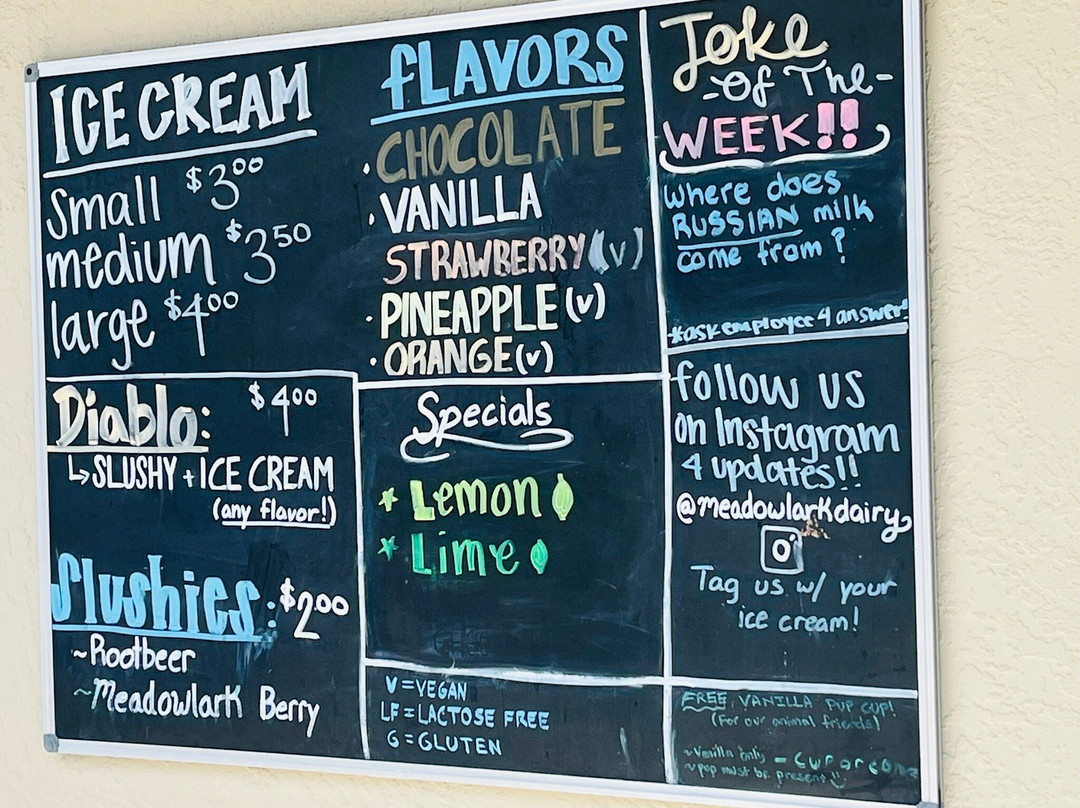 ICE CREAM
Small $3.00
medium $3.50
large $4.00
FLAVORS
·CHOCOLATE
·VANILLA
STRAWBERRY (v)
·PINEAPPLE (v)
·ORANGE (v)
Joke
-Of The-
WEEK!!
Where does
RUSSIAN milk
come from?
*ask employee 4 answer!
Diablo: $4.00
↳SLUSHY + ICE CREAM
(any flavor!)
Slushies: $2.00
~Rootbeer
~Meadowlark Berry
Specials
*Lemon
*Lime
V=VEGAN
LF=LACTOSE FREE
G=GLUTEN
follow us
on Instagram
4 updates!!
@meadowlarkdairy
Tag us w/ your
ice cream!
FREE VANILLA PUP CUP!
(For our animal friends)
~Vanilla only - cup or cone
~pup must be present